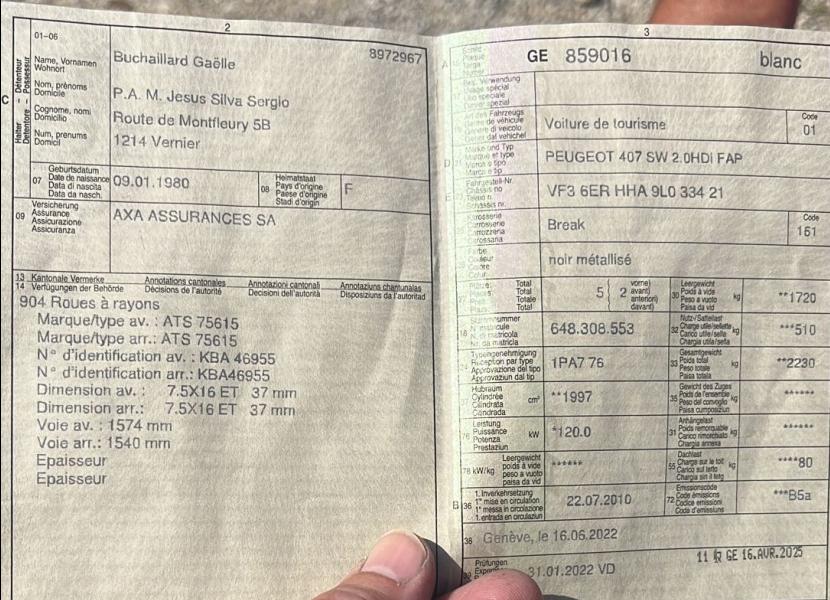 2
01-06
8972967
C
Halter – Détenteur
Detentore – Possessur
Name, Vornamen
Wohnort
Nom, prénoms
Domicile
Cognome, nomi
Domicilio
Num, prenums
Domicil
Buchaillard Gaëlle
P.A. M. Jesus Silva Sergio
Route de Montfleury 5B
1214 Vernier
07
Geburtsdatum
Date de naissance
Data di nascita
Data da nasch.
09.01.1980
08
Heimatstaat
Pays d'origine
Paese d'origine
Stadi d'origin
F
09
Versicherung
Assurance
Assicurazione
Assicuranza
AXA ASSURANCES SA
13 Kantonale Vermerke Annotations cantonales Annotazioni cantonali Annotaziuns chantunalas
14 Verfügungen der Behörde Décisions de l'autorité Decisioni dell'autorità Disposiziuns da l'autoritad
904 Roues à rayons
Marque/type av. : ATS 75615
Marque/type arr.: ATS 75615
N° d'identification av. : KBA 46955
N° d'identification arr.: KBA46955
Dimension av. : 7.5X16 ET 37 mm
Dimension arr.: 7.5X16 ET 37 mm
Voie av. : 1574 mm
Voie arr.: 1540 mm
Epaisseur
Epaisseur
3
A
GE 859016 blanc
Bes. Verwendung
Usage spécial
Uso speciale
Diever spezial
Art des Fahrzeugs
Genre de véhicule
Genere di veicolo
Gener dal vehichel
Voiture de tourisme
Code
01
D
Marke und Typ
Marque et type
Marca e tipo
Marca e tip
PEUGEOT 407 SW 2.0HDI FAP
E
Fahrgestell-Nr.
Châssis no
Telaio n.
Schassis nr.
VF3 6ER HHA 9L0 334 21
Karosserie
Carrosserie
Carrozzeria
Carossaria
Break
Code
161
Farbe
Couleur
Colore
Colur
noir métallisé
Total
Total
Totale
Total
5
2
vorne
avant
anteriori
davant
30
Leergewicht
Poids à vide
Peso a vuoto
Paisa da vid
kg
**1720
18
Stammnummer
N° matricule
N. di matricola
Nr. da matricla
648.308.553
32
Nutz-/Sattellast
Charge utile/sellette
Carico utile/sella
Chargia utila/sella
kg
***510
Typengenehmigung
Réception par type
Approvazione del tipo
Approvaziun dal tip
1PA7 76
33
Gesamtgewicht
Poids total
Peso totale
Paisa totala
kg
**2230
Hubraum
Cylindrée
Cilindrata
Cindrada
cm³
**1997
35
Gewicht des Zuges
Poids de l'ensemble
Peso del convoglio
Paisa cumposiziun
kg
******
76
Leistung
Puissance
Potenza
Prestaziun
kW
*120.0
31
Anhängelast
Poids remorquable
Carico rimorchiato
Chargia annexa
kg
******
78 kW/kg
Leergewicht
poids à vide
peso a vuoto
paisa da vid
******
55
Dachlast
Charge sur le toit
Carico sul tetto
Chargia sin il tetg
kg
****80
B
36
1. Inverkehrsetzung
1re mise en circulation
1a messa in circolazione
1. entrada en circulaziun
22.07.2010
72
Emissionscode
Code émissions
Codice emissioni
Code d'emissiuns
***B5a
38
Genève, le 16.06.2022
Prüfungen
31.01.2022 VD
GE 16.AVR.2025